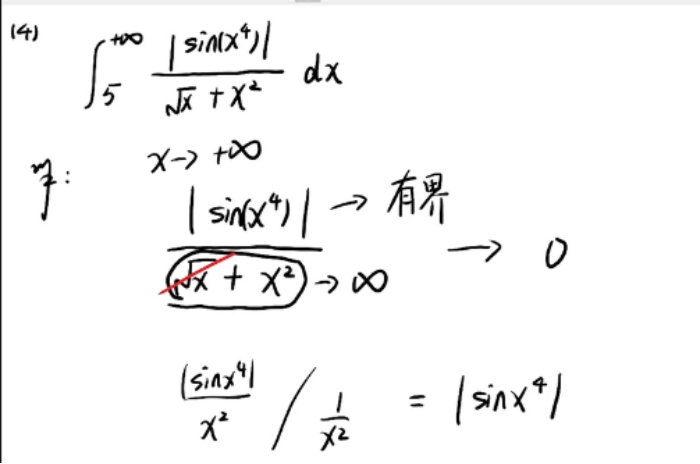 (4)
∫₅^{+∞} |sin(x⁴)| / (√x + x²) dx
解: x → +∞
|sin(x⁴)| → 有界
√x + x² → ∞
→ 0
|sinx⁴| / x² / 1/x² = |sinx⁴|